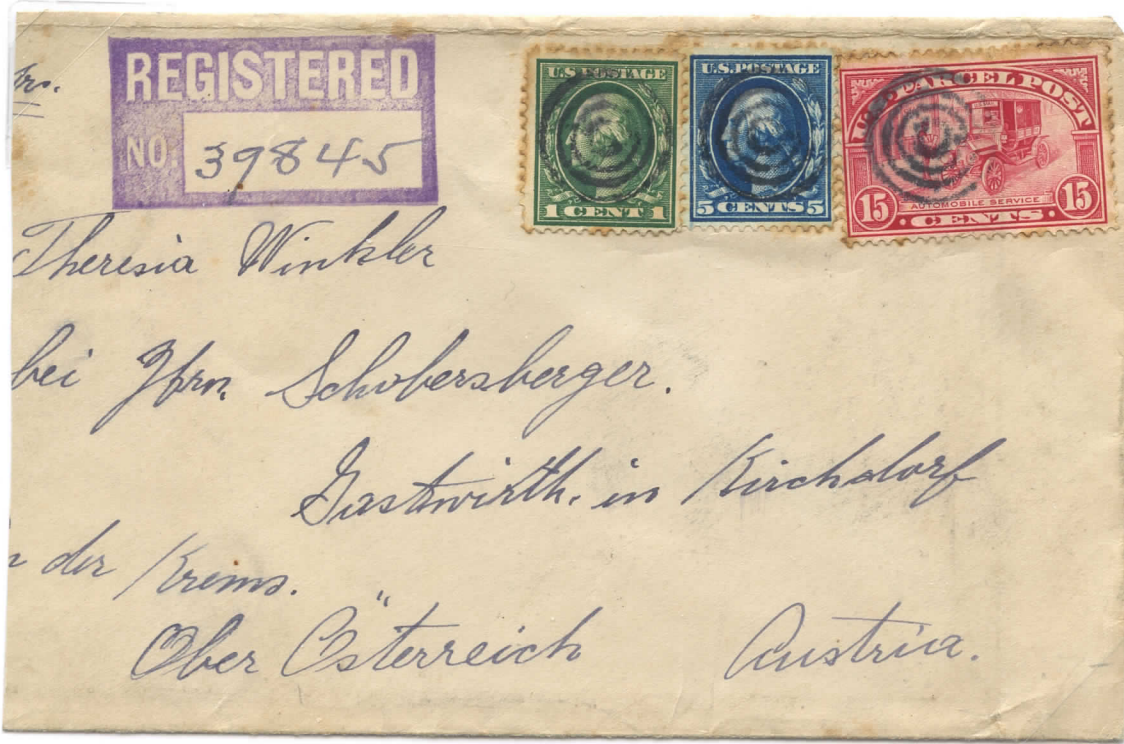 REGISTERED
NO. 39845
U.S. POSTAGE
1 CENT 1
U.S. POSTAGE
5 CENTS 5
U.S. PARCEL POST
AUTOMOBILE SERVICE
15 CENTS 15
Theresia Winkler
bei Hrn. Schobersberger.
Gastwirth. in Kirchdorf
der Krems.
Ober Österreich Austria.